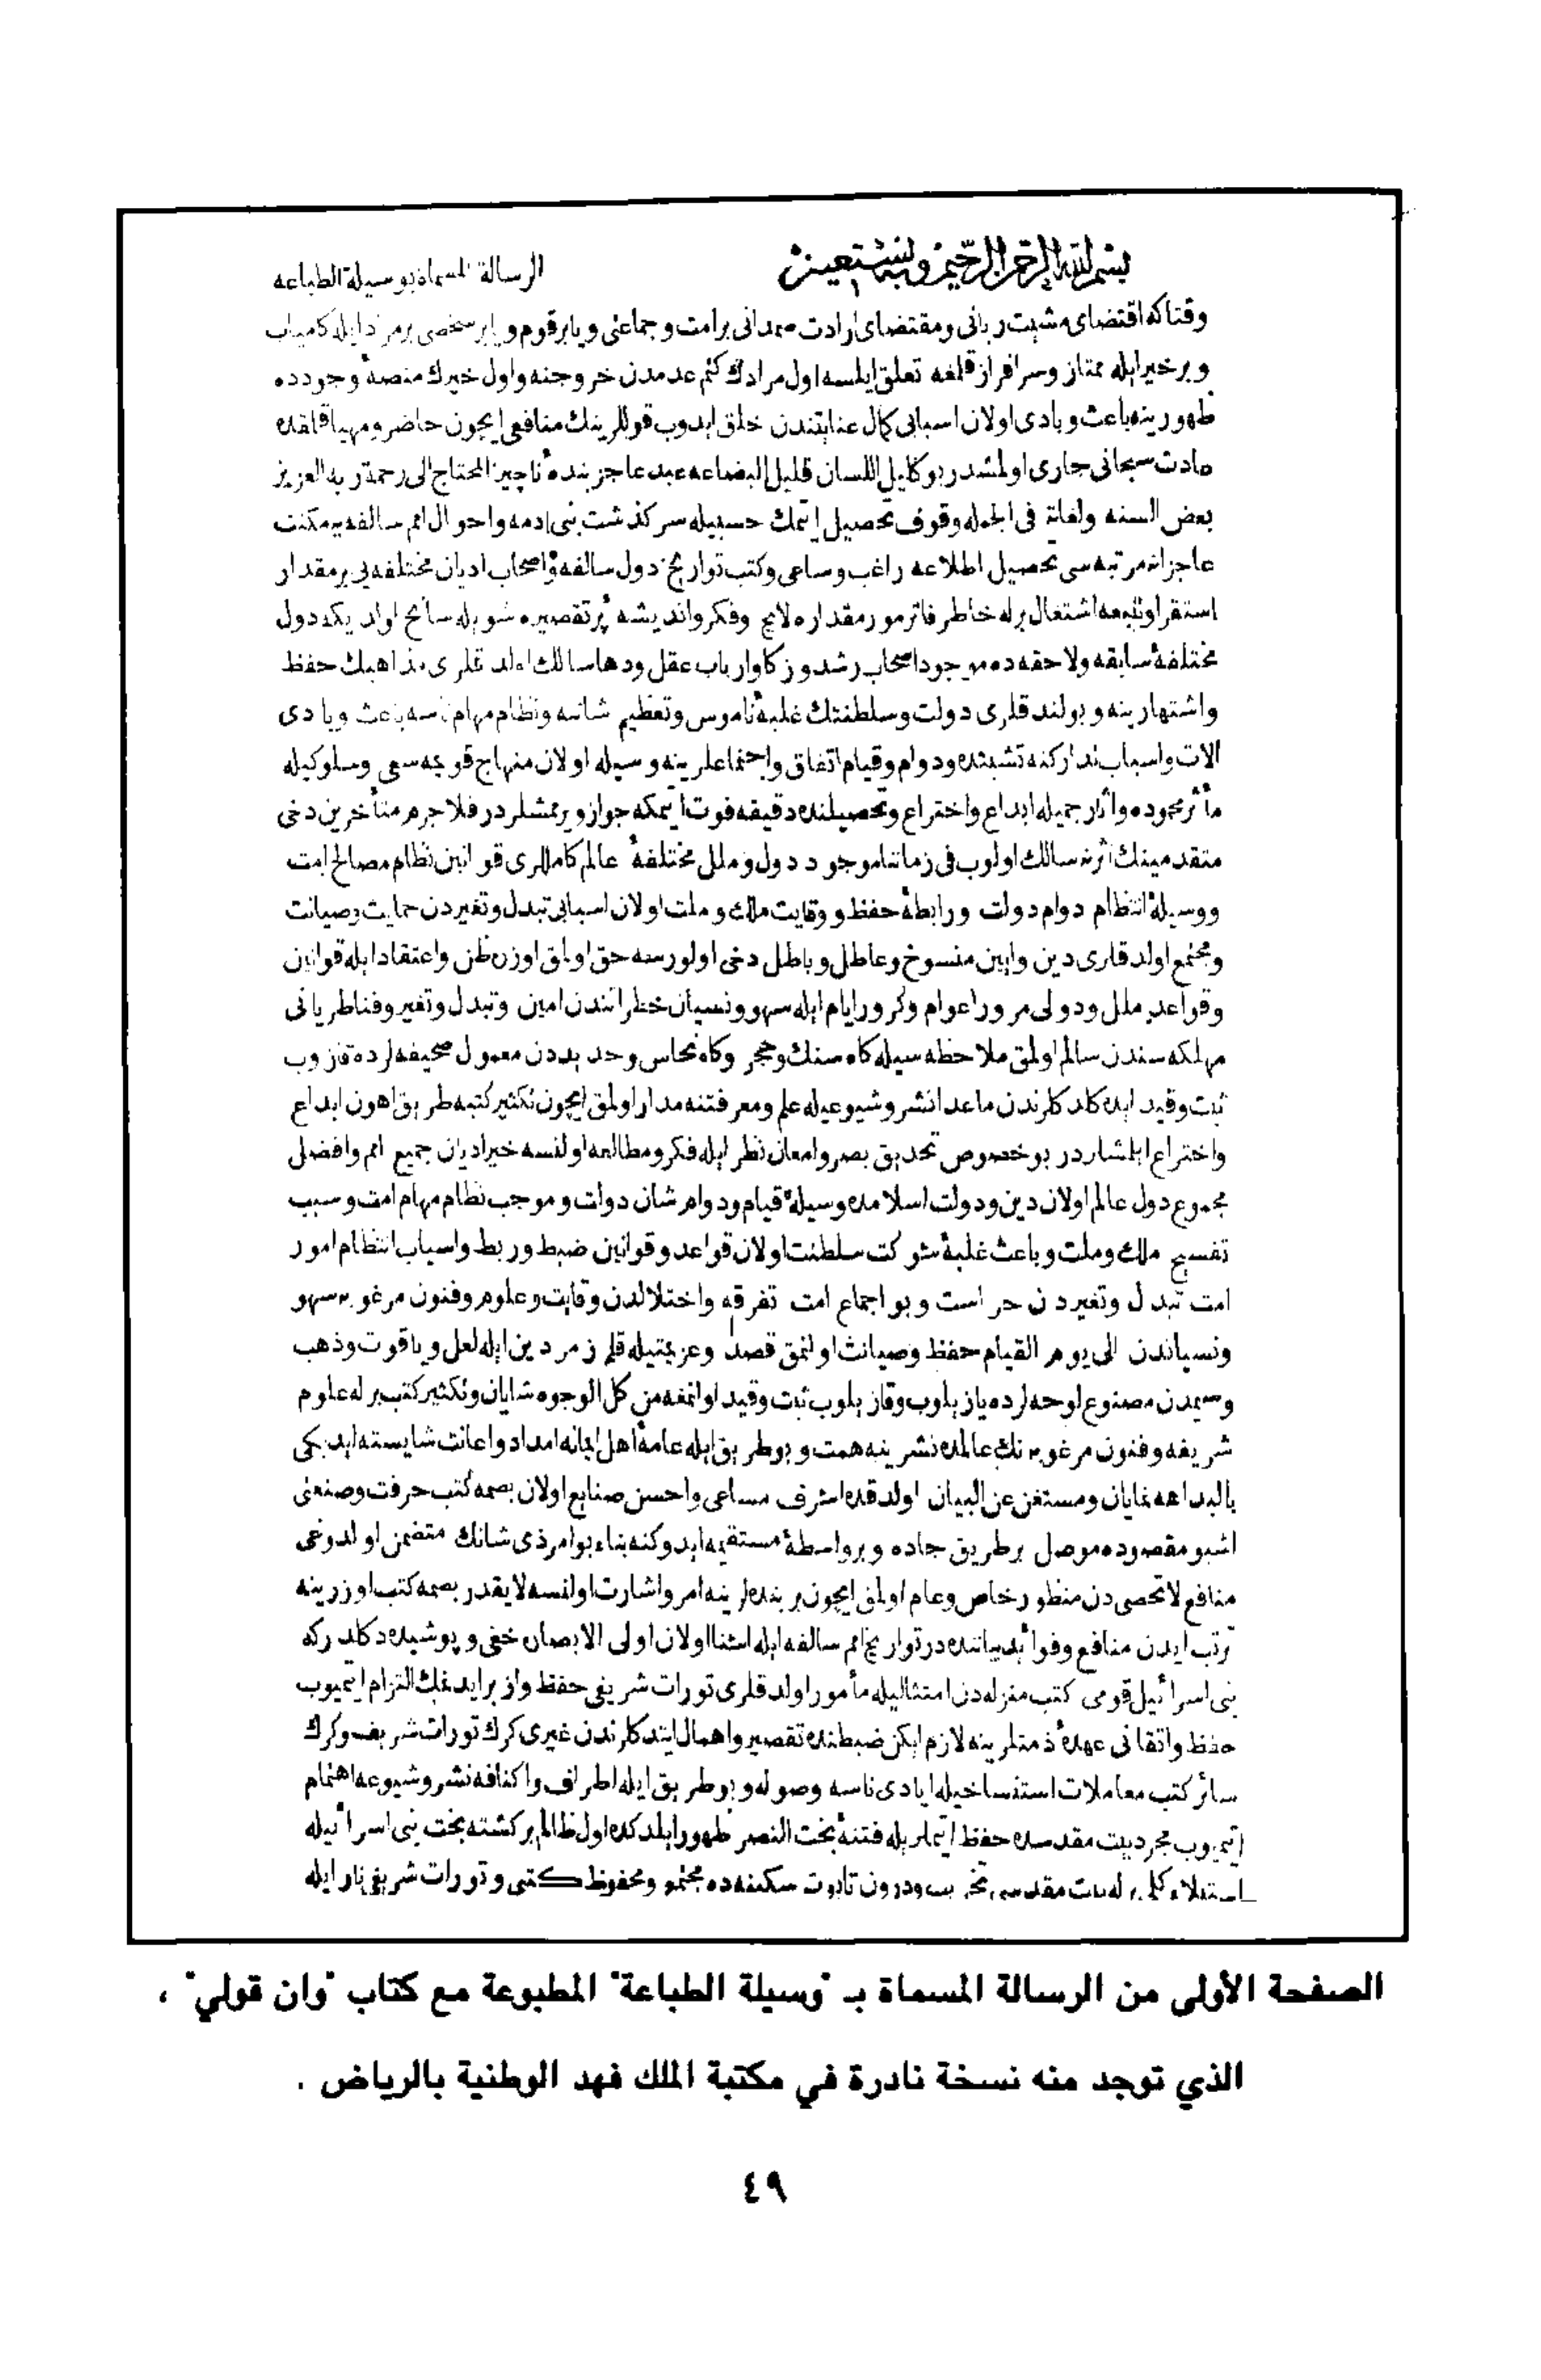 بسم الله الرحمن الرحيم وبه نستعين
الرسالة المسماة بوسيلة الطباعه
وقتاكه اقتضاى مشيت ربانى ومقتضاى ارادت صمدانى برامت وجماعتى ويابرقوم و يابرشخصى برمرادايله كامياب
وبرخيرايله ممتاز وسرافراز قلغه تعلق ايلسه اول مرادك كتم عدمدن خروجنه واول خيرك منصهٔ وجودده
ظهورينه باعث وبادى اولان اسبابى كمال عنايتندن خلق ايدوب قوللرينك منافعى ايچون حاضر ومهيا قلقده
عادت سبحانى جارى اولمشدر بوكليل اللسان قليل البضاعه عبد عاجز بندهٔ ناچيز المحتاج الى رحمة ربه العزيز
بعض السنه ولغاته فى الجمله وقوف تحصيل ايتمك حسبيله سركذشت بنى ادمه واحوال امم سالفه يه مكنت
عاجزانه مرتبه سى تحصيل اطلاعه راغب وساعى وكتب تواريخ دول سالفه واصحاب اديان مختلفه يى برمقدار
استقرا وتتبعه اشتغال برله خاطر فاتر مور مقداره لايح وفكر وانديشه پرتقصيره شويله سانح اولديكه دول
مختلفهٔ سابقه ولاحقه ده موجود اصحاب رشد وزكا وارباب عقل ودها سالك اولدقلرى مذاهبك حفظ
واشتهارينه وبولندقلرى دولت وسلطنتك غلبهٔ ناموس وتعظيم شانه ونظام مهام ناسه باعث وبادى
الات واسباب تداركنه تشبثده ودوام وقيام اتفاق واجتماعلرينه وسيله اولان منهاج قويمه سعى وسلوكيله
مأثر محموده واثار جميله ابداع واختراع وتحصيلنده دقيقه فوت ايتمكه جواز ويرمشلردر فلاجرم متأخرين دخى
متقدمينك اثرنه سالك اولوب فى زماننا موجود دول وملل مختلفهٔ عالم كاملرى قوانين نظام مصالح امت
ووسيلهٔ انتظام دوام دولت ورابطهٔ حفظ ووقايت ملك وملت اولان اسبابى تبدل وتغيردن حمايت وصيانت
ومجتمع اولدقلرى دين وايين منسوخ وعاطل وباطل دخى اولورسه حق اولمق اوزره ظن واعتقاد ايله قوانين
وقواعد ملل ودولى مرور اعوام وكرور ايام ايله سهو ونسيان خطراتندن امين وتبدل وتغير وفناطريانى
مهلكه سندن سالم اولمق ملاحظه سيله كاه سنك وحجر وكاه نحاس وحديددن معمول صحيفه لرده قازوب
ثبت وقيد ايده كلدكلرندن ماعدا نشر وشيوعيله علم ومعرفتنه مدار اولمق ايچون تكثير كتبه طريق اهون ابداع
واختراع ايلمشلردر بوخصوص تحديق بصر وامعان نظر ايله فكر ومطالعه اولنسه خير اديان جميع امم وافضل
مجموع دول عالم اولان دين ودولت اسلامده وسيلهٔ قيام ودوام شان دولت وموجب نظام مهام امت وسبب
تفسيح ملك وملت وباعث غلبهٔ شوكت سلطنت اولان قواعد وقوانين ضبط وربط واسباب انتظام امور
امت تبدل وتغيردن حراست وبواجماع امت تفرقه واختلالدن وقايت وعلوم وفنون مرغوبه سهو
ونسياندن الى يوم القيام حفظ وصيانت اولنمق قصد وعزيمتيله قلم زمردين ايله لعل وياقوت وذهب
وسيمدن مصنوع لوحه لرده يازيلوب وقازيلوب ثبت وقيد اولنمغه من كل الوجوه شايان وتكثير كتب برله علوم
شريفه وفنون مرغوبه نك عالمده نشرينه همت وبوطريق ايله عامهٔ اهل ايمانه امداد واعانت شايسته ايديكى
بالبداهه نمايان ومستغن عن البيان اولدقده اشرف مساعى واحسن صنايع اولان بصمه كتب حرفت وصنعتى
اشبو مقصوده موصل برطريق جاده وبرواسطهٔ مستقيمه ايدوكنه بناء بوامر ذى شانك متضمن اولدوغى
منافع لاتحصى دن منظور خاص وعام اولمق ايچون بربنده لرينه امر واشارت اولنسه لايقدر بصمه كتب اوزرينه
ترتب ايدن منافع وفوائد بياننده در تواريخ امم سالفه ايله اشنا اولان اولى الابصاره خفى وپوشيده دكلدركه
بنى اسرائيل قومى كتب منزله دن امتثاليله مأمور اولدقلرى تورات شريفى حفظ وازبر ايدنلك التزام ايتميوب
حفظ واتقانى عهدهٔ ذمتلرينه لازم ايكن ضبطنده تقصير واهمال ايتدكلرندن غيرى كرك تورات شريف وكرك
سائر كتب معاملات استنساخيله ايادى ناسه وصوله وبوطريق ايله اطراف واكنافه نشر وشيوعه اهتمام
ايتميوب مجرد بيت مقدسده حفظ ايتملريله فتنهٔ بخت النصر ظهور ايلدكده اول ظالم بركشته بخت بنى اسرائيله
استيلاء كلى برله بيت مقدسى تخريب ودرون تابوت سكينه ده مجتمع ومحفوظ كتبى وتورات شريفى نار ايله
الصفحة الأولى من الرسالة المسماة بـ "وسيلة الطباعة" المطبوعة مع كتاب "وان قولي" ،
الذي توجد منه نسخة نادرة في مكتبة الملك فهد الوطنية بالرياض .
٤٩